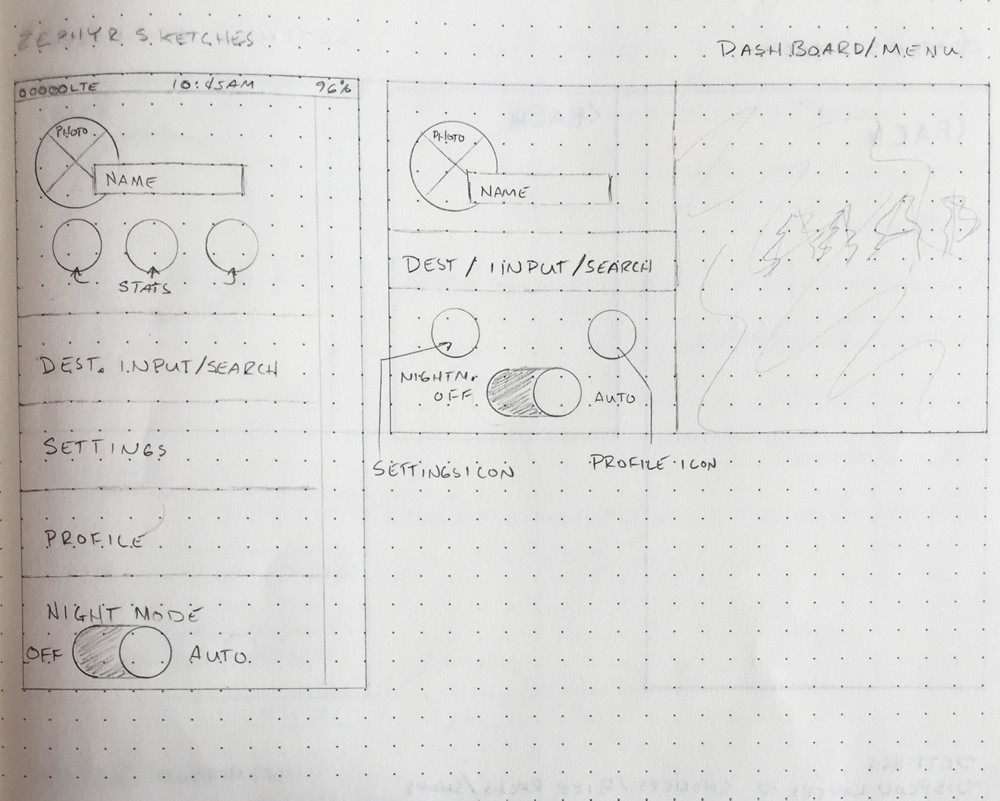 ZEPHYR SKETCHES
DASHBOARD/MENU
00000LTE 10:45AM 96%
PHOTO
NAME
STATS
DEST. INPUT/SEARCH
SETTINGS
PROFILE
NIGHT MODE
OFF AUTO
PHOTO
NAME
DEST/INPUT/SEARCH
NIGHTM.
OFF AUTO
SETTINGS ICON
PROFILE ICON